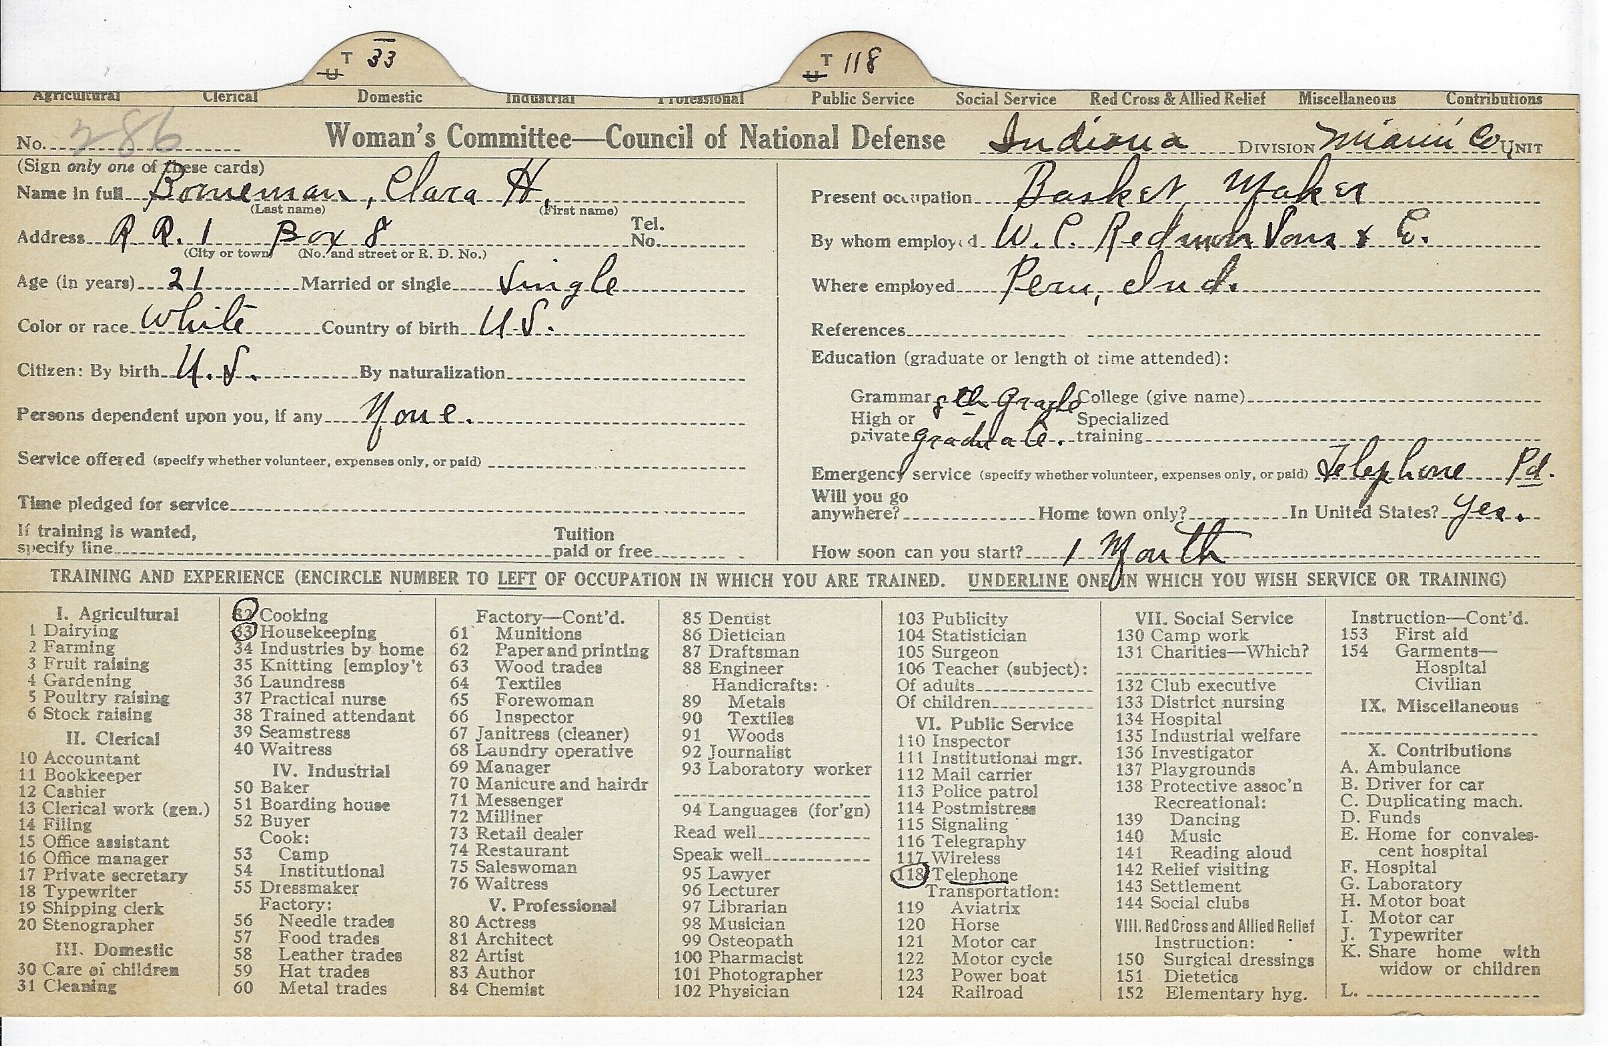 T 33 T 118
U U
Agricultural Clerical Domestic Industrial Professional Public Service Social Service Red Cross & Allied Relief Miscellaneous Contributions
No. 286 Woman's Committee—Council of National Defense Indiana DIVISION Miami Co UNIT
(Sign only one of these cards)
Name in full Borneman, Clara H.
(Last name) (First name)
Address R R. 1 Box 8 Tel. No.
(City or town) (No. and street or R. D. No.)
Age (in years) 21 Married or single Single
Color or race White Country of birth U.S.
Citizen: By birth U.S. By naturalization
Persons dependent upon you, if any None.
Service offered (specify whether volunteer, expenses only, or paid)
Time pledged for service
If training is wanted, Tuition
specify line paid or free
Present occupation Basket Maker
By whom employed W. C. Redmon Sons & Co.
Where employed Peru, Ind.
References
Education (graduate or length of time attended):
Grammar 8th Grade College (give name)
High or Specialized
private graduate. training
Emergency service (specify whether volunteer, expenses only, or paid) Telephone Pd.
Will you go
anywhere? Home town only? In United States? Yes.
How soon can you start? 1 Month
TRAINING AND EXPERIENCE (ENCIRCLE NUMBER TO LEFT OF OCCUPATION IN WHICH YOU ARE TRAINED. UNDERLINE ONE IN WHICH YOU WISH SERVICE OR TRAINING)
I. Agricultural
1 Dairying
2 Farming
3 Fruit raising
4 Gardening
5 Poultry raising
6 Stock raising
II. Clerical
10 Accountant
11 Bookkeeper
12 Cashier
13 Clerical work (gen.)
14 Filing
15 Office assistant
16 Office manager
17 Private secretary
18 Typewriter
19 Shipping clerk
20 Stenographer
III. Domestic
30 Care of children
31 Cleaning
32 Cooking
33 Housekeeping
34 Industries by home
35 Knitting [employ't
36 Laundress
37 Practical nurse
38 Trained attendant
39 Seamstress
40 Waitress
IV. Industrial
50 Baker
51 Boarding house
52 Buyer
Cook:
53 Camp
54 Institutional
55 Dressmaker
Factory:
56 Needle trades
57 Food trades
58 Leather trades
59 Hat trades
60 Metal trades
Factory—Cont'd.
61 Munitions
62 Paper and printing
63 Wood trades
64 Textiles
65 Forewoman
66 Inspector
67 Janitress (cleaner)
68 Laundry operative
69 Manager
70 Manicure and hairdr
71 Messenger
72 Milliner
73 Retail dealer
74 Restaurant
75 Saleswoman
76 Waitress
V. Professional
80 Actress
81 Architect
82 Artist
83 Author
84 Chemist
85 Dentist
86 Dietician
87 Draftsman
88 Engineer
Handicrafts:
89 Metals
90 Textiles
91 Woods
92 Journalist
93 Laboratory worker
94 Languages (for'gn)
Read well
Speak well
95 Lawyer
96 Lecturer
97 Librarian
98 Musician
99 Osteopath
100 Pharmacist
101 Photographer
102 Physician
103 Publicity
104 Statistician
105 Surgeon
106 Teacher (subject):
Of adults
Of children
VI. Public Service
110 Inspector
111 Institutional mgr.
112 Mail carrier
113 Police patrol
114 Postmistress
115 Signaling
116 Telegraphy
117 Wireless
118 Telephone
Transportation:
119 Aviatrix
120 Horse
121 Motor car
122 Motor cycle
123 Power boat
124 Railroad
VII. Social Service
130 Camp work
131 Charities—Which?
132 Club executive
133 District nursing
134 Hospital
135 Industrial welfare
136 Investigator
137 Playgrounds
138 Protective assoc'n
Recreational:
139 Dancing
140 Music
141 Reading aloud
142 Relief visiting
143 Settlement
144 Social clubs
VIII. Red Cross and Allied Relief
Instruction:
150 Surgical dressings
151 Dietetics
152 Elementary hyg.
Instruction—Cont'd.
153 First aid
154 Garments—
Hospital
Civilian
IX. Miscellaneous
X. Contributions
A. Ambulance
B. Driver for car
C. Duplicating mach.
D. Funds
E. Home for convales-
cent hospital
F. Hospital
G. Laboratory
H. Motor boat
I. Motor car
J. Typewriter
K. Share home with
widow or children
L.